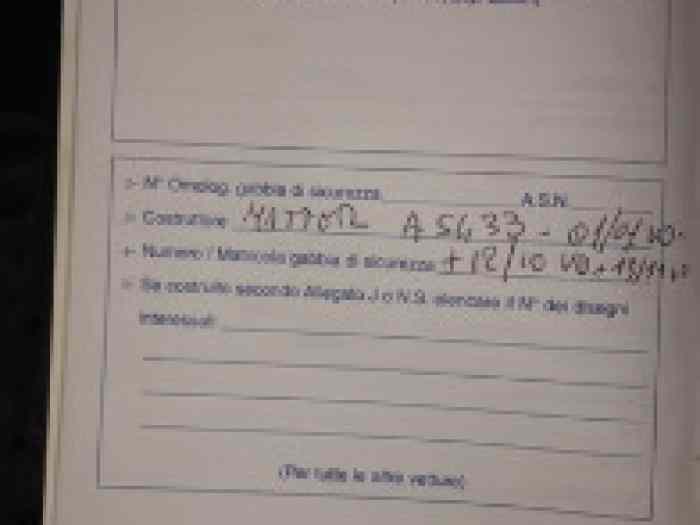 > N° Omolog. gabbia di sicurezza A.S.N.
> Costruttore MATTER AS433 - 01/01 VO-
+ Numero / Matricola gabbia di sicurezza +12/10 VO + 13/11 VO
> Se costruito secondo Allegato J o N.S. elencare il N° dei disegni
interessati:
(Per tutte le altre vetture)